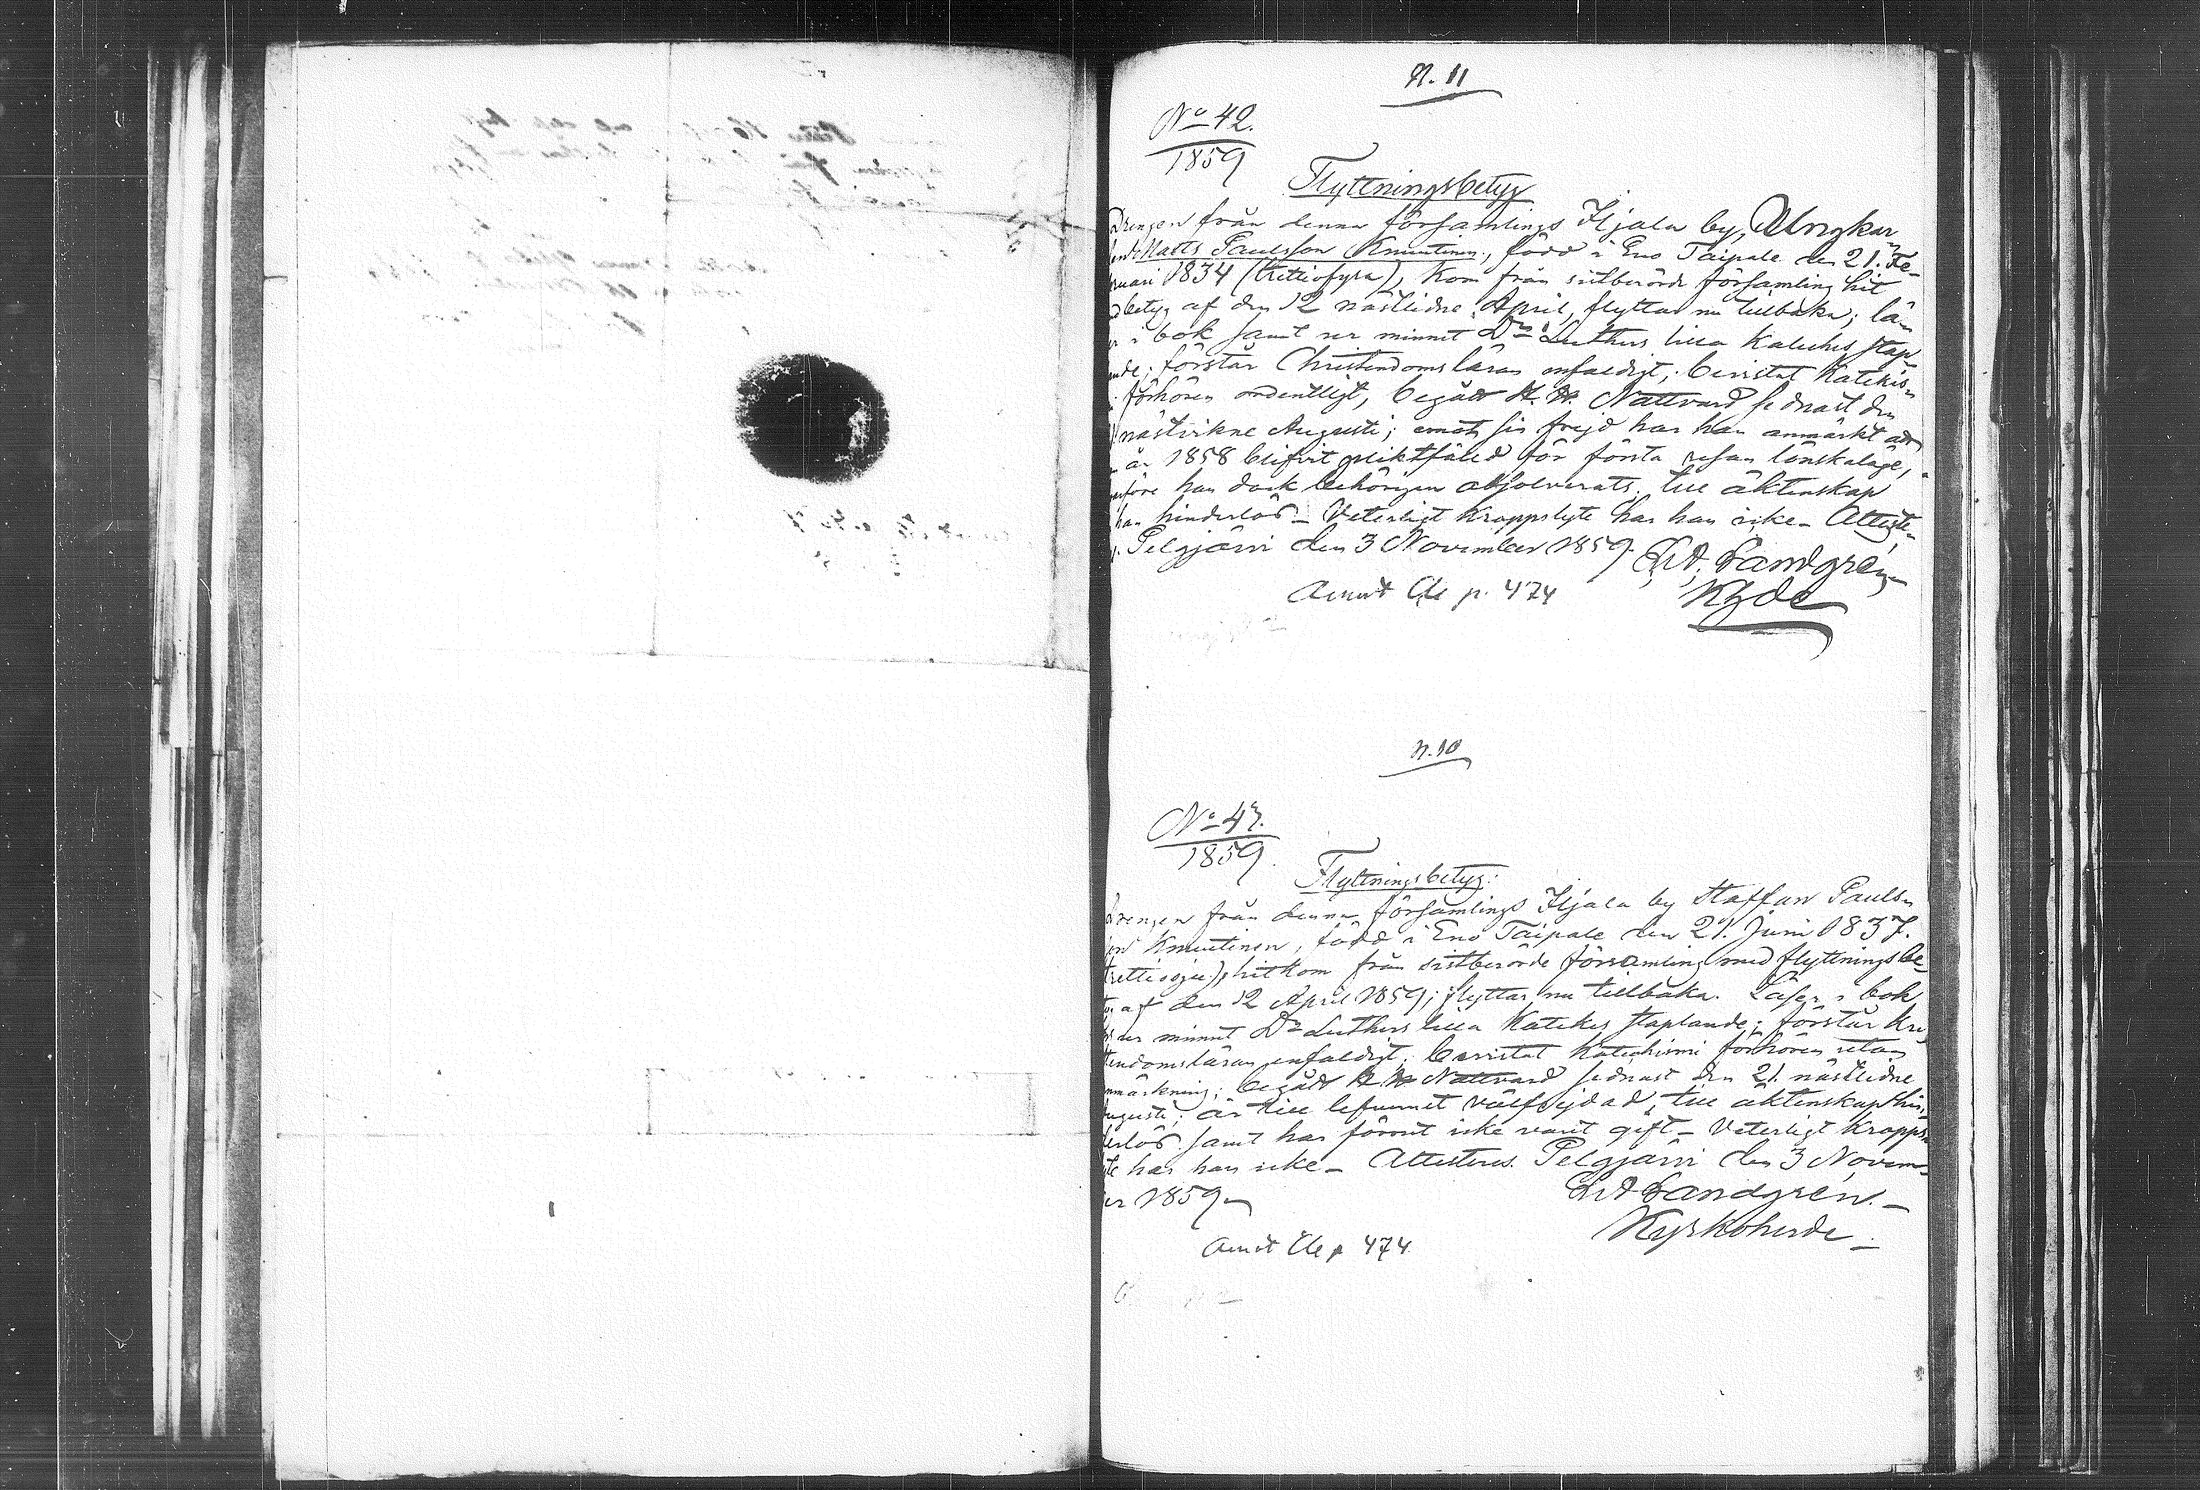 N. 11
No 42.
1859
Flyttningsbetyg
Drengen från denna församlings Hjala by, Ungkar
Matts Paulsson Knuutinen, född i Eno Taipale den 21. Fe-
ruari 1834 (trettiofyra), kom från sistberörde församling hit
betyg af den 12 nästlidne April, flyttar nu tillbaka; lä-
i bok samt ur minnet Drs Luthers lilla Kateches stap
ande; förstår Christendomsläran enfaldigt; bevistat Katekis-
förhören ordentligt, begådt H. H. Nattvard sednast den
nästvikne Augusti; emot sin frejd har han anmärkt att
år 1858 blifvit pliktfälld för första resan lönskaläge,
före han dock behörigen absolverats. till äktenskap
han hinderlös – Veterligt kroppslyte har han icke – Atteste-
Pelgjärvi den 3 November 1859.
Landgrén
Khde
p. 474
n. 10
No 43.
1859.
Flyttningsbetyg:
Drengen från denna församlings Hjala by Staffan Pauls-
son Knuutinen, född i Eno Taipale den 21. Juni 1837.
trettiosju), hitkom från sistberörde församling med flyttningsbe-
af den 12 April 1859; flyttar nu tillbaka. Läser i bok
ur minnet Drs Luthers lilla Kateches staplande; förstår Kri-
tendomsläran enfaldigt; bevistat Katechismi förhören utan
nmärkning; begådt H. H. Nattvard sednast den 21. nästlidne
ugusti; är till lefvernet välfrejdad; till äktenskap hin-
derlös samt har förrut icke varit gift – Veterligt kropps-
te har han icke – Attesteras. Pelgjärvi den 3 Novem-
er 1859
Landgrén.
Kyrkoherde
p 474